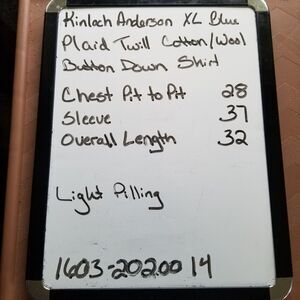 Kinloch Anderson XL Blue
Plaid Twill Cotton/Wool
Button Down Shirt
Chest Pit to Pit 28
Sleeve 37
Overall Length 32
Light Pilling
1603-20200 14